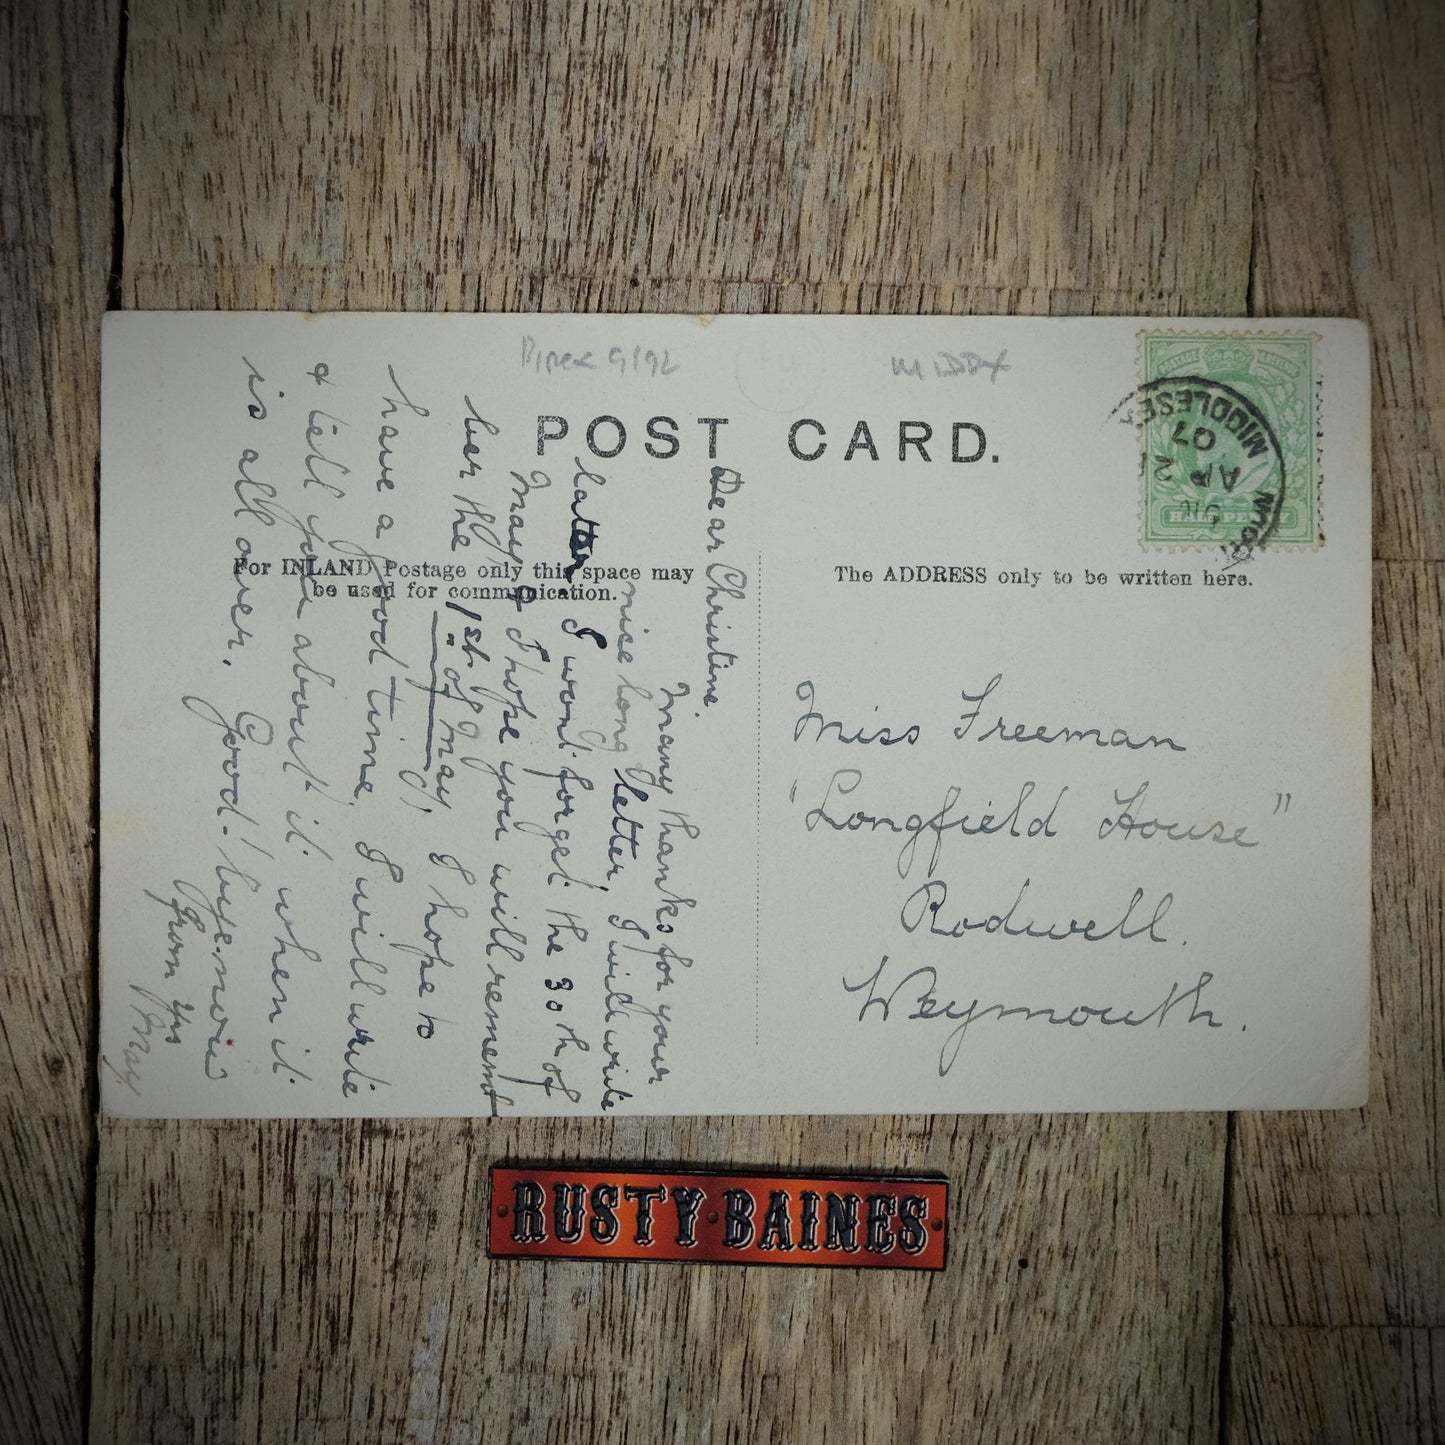 9/92
MIDDX
POST CARD.
For INLAND Postage only this space may
be used for communication.
The ADDRESS only to be written here.
POSTAGE REVENUE
HALF PENNY
MIDDLESE
AP 21
07
Dear Christine,
Many thanks for your
nice long letter, I will write
later I wont forget the 30th of
May & I hope you will remem
ber the 1st. of May. I hope to
have a good time, I will write
& tell you about it when it
is all over. Good-bye. now
From Yrs
May
Miss Freeman
"Longfield House"
Rodwell.
Weymouth.
RUSTY BAINES